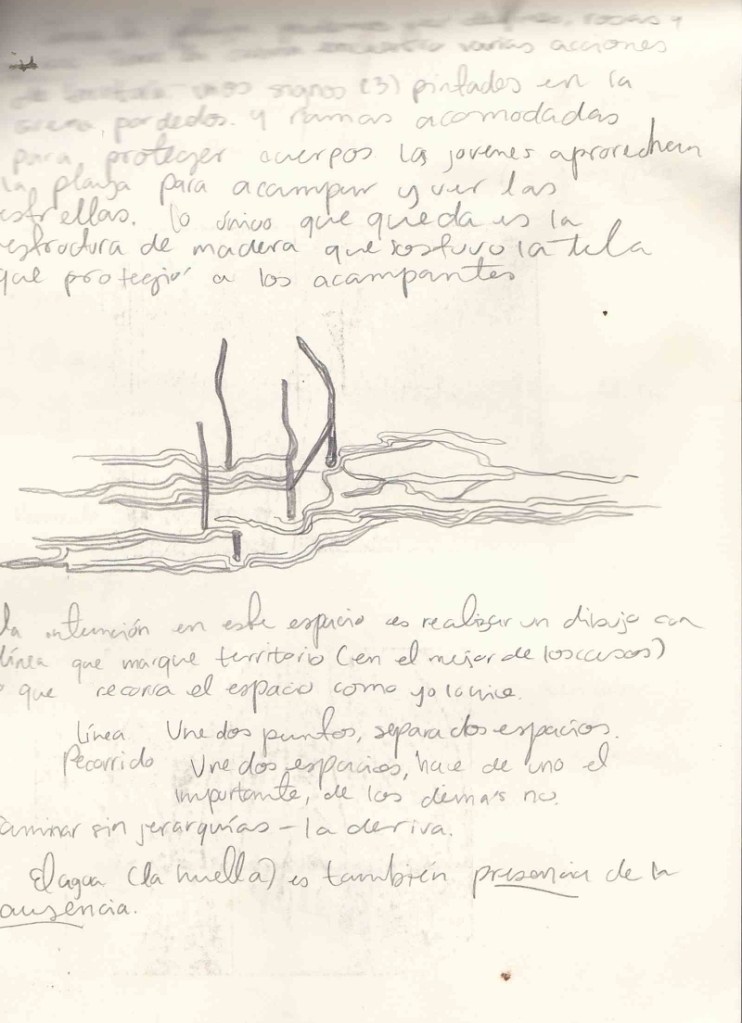 rosas y
varias acciones
signos (3) pintados en la
arena, por dedos. y ramas acomodadas
para proteger cuerpos los jovenes aprovechan
la playa para acampar y ver las
estrellas. lo único que queda es la
estructura de madera que sostuvo la tela
que protegió a los acampantes
la intención en este espacio es realizar un dibujo con
línea que marque territorio (en el mejor de los casos)
o que recorra el espacio como yo lo hice.
Línea Une dos puntos, separa dos espacios.
Recorrido Une dos espacios, hace de uno el
importante, de los demás no.
caminar sin jerarquías - la deriva.
El agua (la huella) es también presencia de la
ausencia.